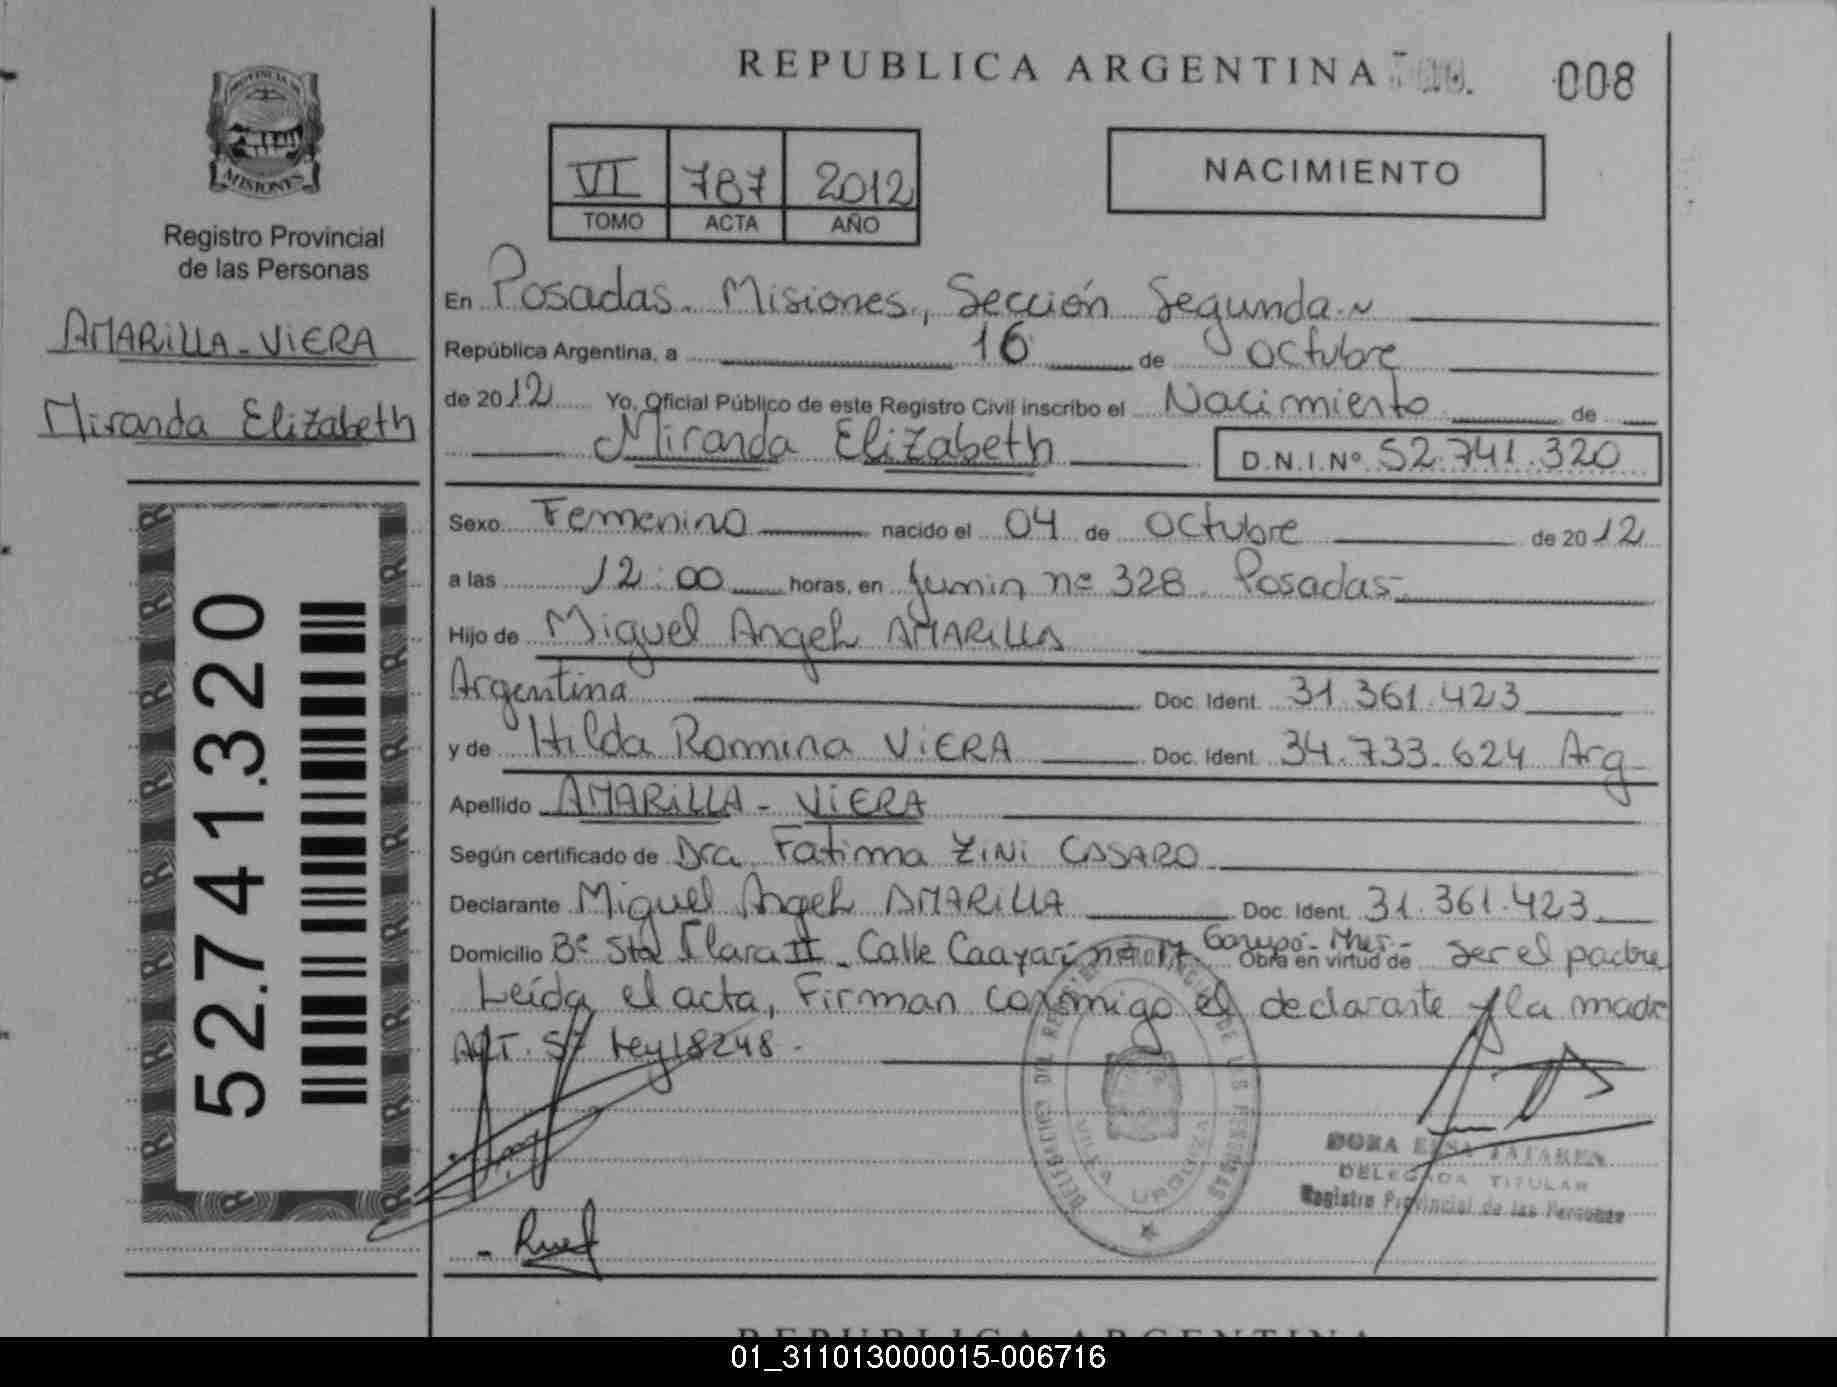 REPUBLICA ARGENTINA
008
PROVINCIA
MISIONES
Registro Provincial
de las Personas
AMARILLA - VIERA
Miranda Elizabeth
52.741.320
VI 787 2012
TOMO ACTA AÑO
NACIMIENTO
En Posadas. Misiones, Sección Segunda
República Argentina, a 16 de Octubre
de 2012 Yo, Oficial Público de este Registro Civil inscribo el Nacimiento de
Miranda Elizabeth D.N.I.Nº 52.741.320
Sexo Femenino nacido el 04 de Octubre de 2012
a las 12:00 horas, en Junin nº 328 Posadas
Hijo de Miguel Angel AMARILLA
Argentina Doc. Ident. 31.361.423
y de Hilda Romina VIERA Doc. Ident. 34.733.624 Arg
Apellido AMARILLA - VIERA
Según certificado de Dra. Fatima ZINI CASARO
Declarante Miguel Angel AMARILLA Doc. Ident. 31.361.423
Domicilio Bº Sta Clara II - Calle Caayarí Obra en virtud de ser el padre
Leída el acta, Firman conmigo el declarante y la madre
ART. 5º Ley 18248 -
DELEGADA TITULAR
Registro Provincial de las Personas
VILLA URQUIZA
REPUBLICA ARGENTINA
01_311013000015-006716